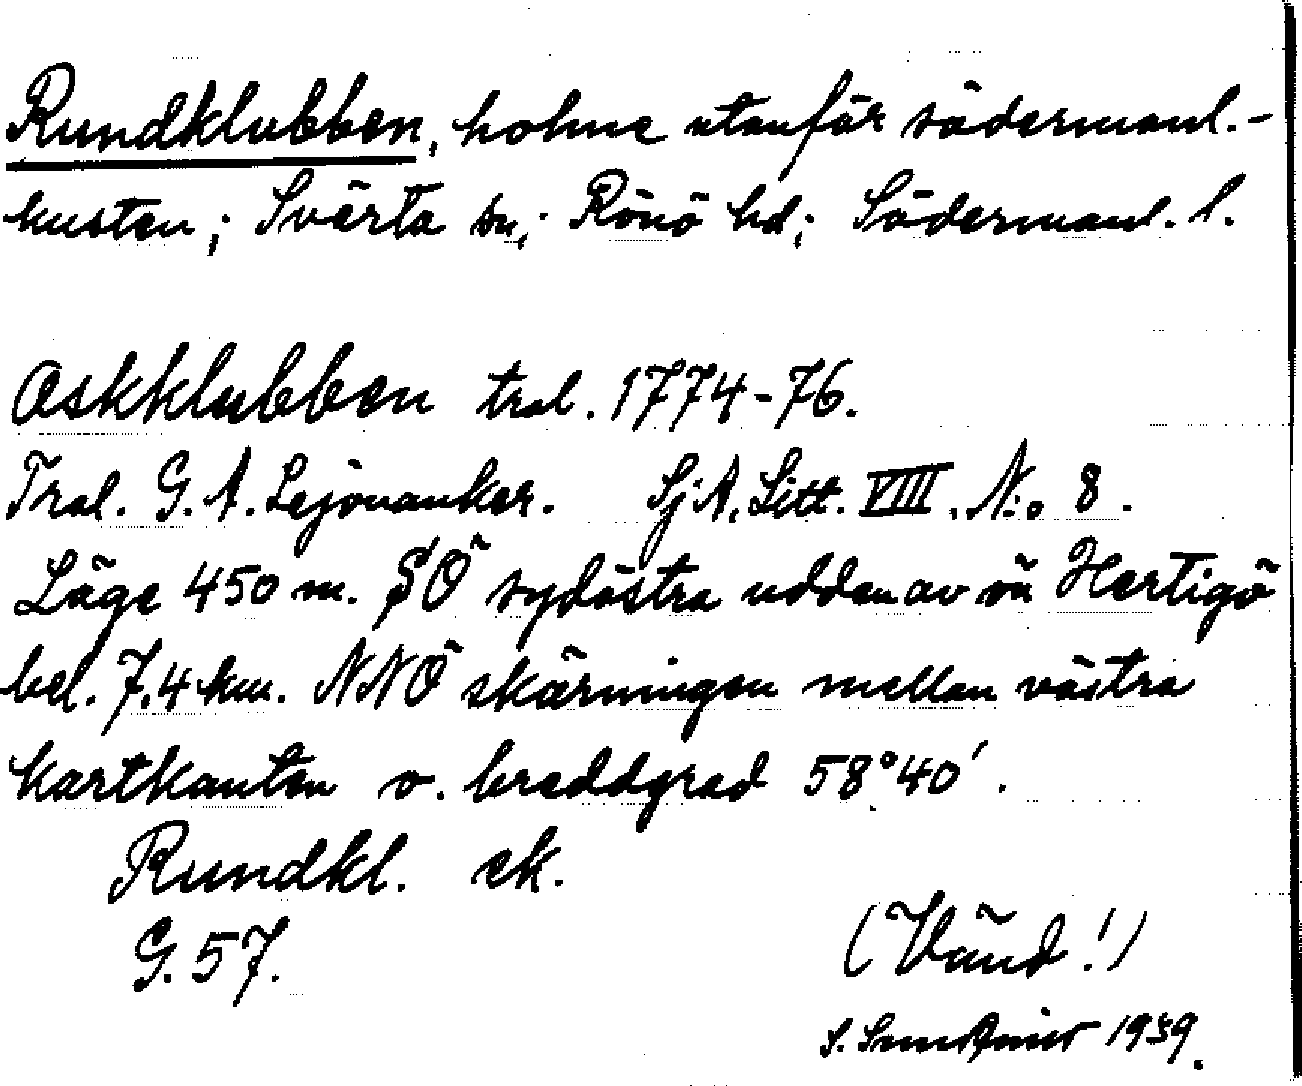 Rundklubben, holme utanför södermanl.-
kusten; Svärta sn; Rönö hd; Södermanl. l.
Askklubben tral. 1774-76.
Tral. G. A. Lejonanker. Sj. A. Litt. VIII. No 8.
Läge 450 m. SÖ sydöstra udden av ön Hertigö
bel. 7,4 km. NNÖ skärningen mellan västra
kartkanten o. breddgrad 58°40'.
Rundkl. ek.
G. 57.
(Vänd!)
S. 1939.